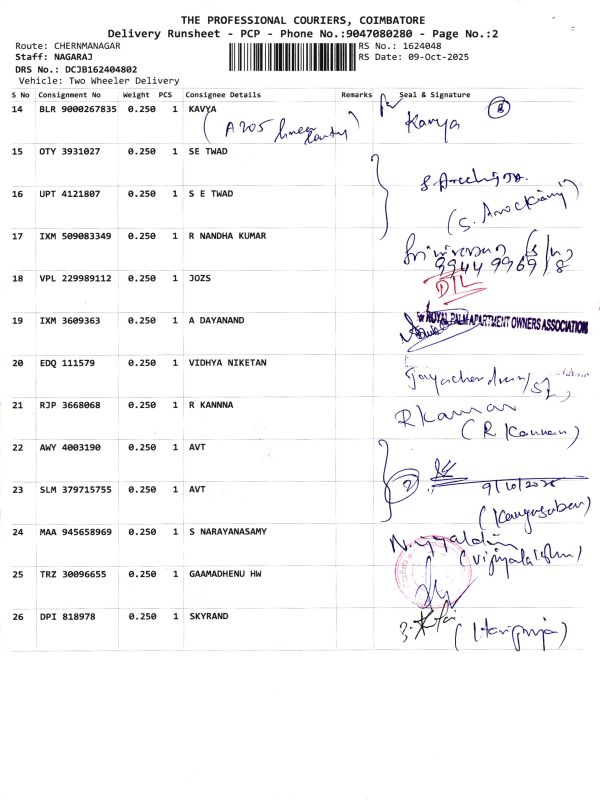 THE PROFESSIONAL COURIERS, COIMBATORE
Delivery Runsheet - PCP - Phone No.:9047080280 - Page No.:2
Route: CHERNMANAGAR
RS No.: 1624048
Staff: NAGARAJ
RS Date: 09-Oct-2025
DRS No.: DCJB162404802
Vehicle: Two Wheeler Delivery
S No Consignment No Weight PCS Consignee Details Remarks Seal & Signature
14 BLR 9000267835 0.250 1 KAVYA Kavya
(A205
15 OTY 3931027 0.250 1 SE TWAD
16 UPT 4121807 0.250 1 S E TWAD
(S. Arockiamj)
17 IXM 509083349 0.250 1 R NANDHA KUMAR Srinivasan S/w
99449969/8
18 VPL 229989112 0.250 1 JOZS DTL
19 IXM 3609363 0.250 1 A DAYANAND ROYAL PALM APARTMENT OWNERS ASSOCIATION
20 EDQ 111579 0.250 1 VIDHYA NIKETAN
21 RJP 3668068 0.250 1 R KANNNA R Kannan
(R Kannan)
22 AWY 4003190 0.250 1 AVT
2
23 SLM 379715755 0.250 1 AVT 9/10/2025
24 MAA 945658969 0.250 1 S NARAYANASAMY
(Vijiyalakshmi)
25 TRZ 30096655 0.250 1 GAAMADHENU HW
26 DPI 818978 0.250 1 SKYRAND (Haripriya)